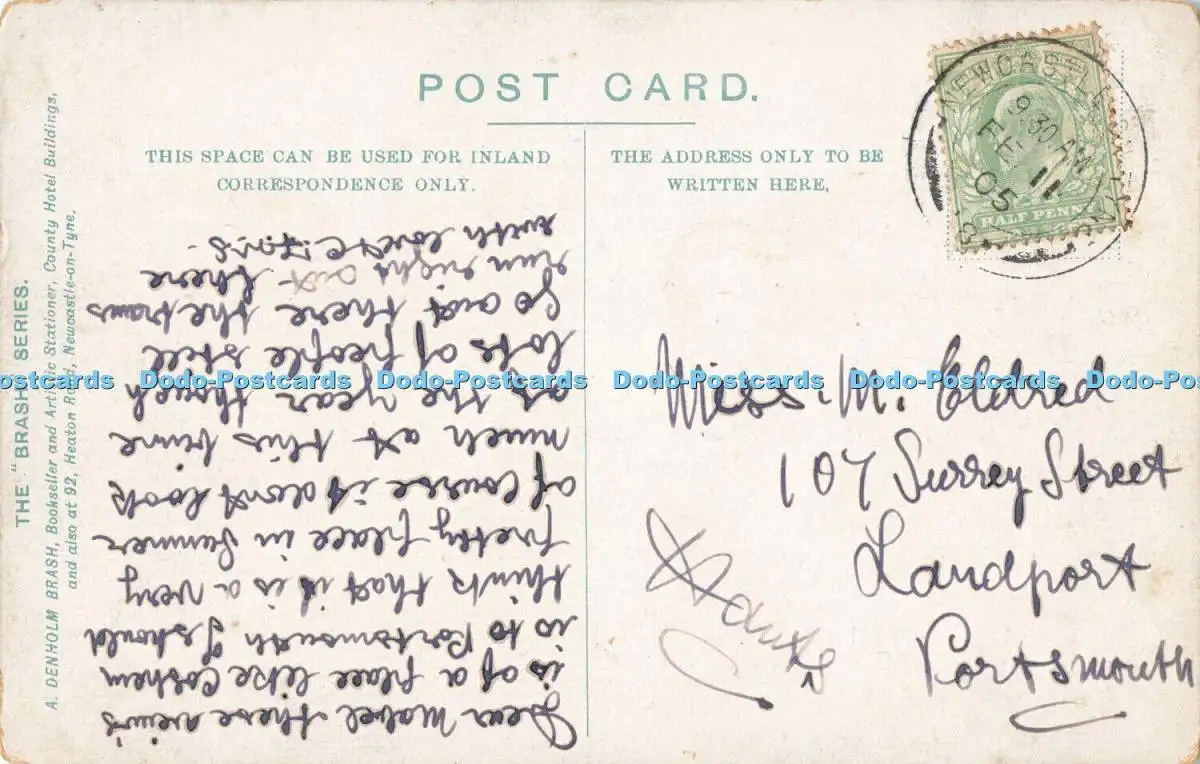 POST CARD.
THIS SPACE CAN BE USED FOR INLAND
CORRESPONDENCE ONLY.
THE ADDRESS ONLY TO BE
WRITTEN HERE,
THE "BRASH" SERIES.
A. DENHOLM BRASH, Bookseller and Artistic Stationer, County Hotel Buildings,
and also at 92, Heaton Road, Newcastle-on-Tyne.
NEWCASTLE
9.30 AM
FE 11
05
HALF PENNY
Dear Mabel these view's
is of a place like Cosham
is to Portsmouth I should
think that it is a very
pretty place in Summer
of course it dont look
much at this time
of the year though
lots of people still
go out there the trams
run right out there
with love
Miss. M. Eldred
107 Surrey Street
Landport
Portsmouth
Hants
Dodo-Postcards Dodo-Postcards Dodo-Postcards Dodo-Postcards Dodo-Postcards Dodo-Postcards